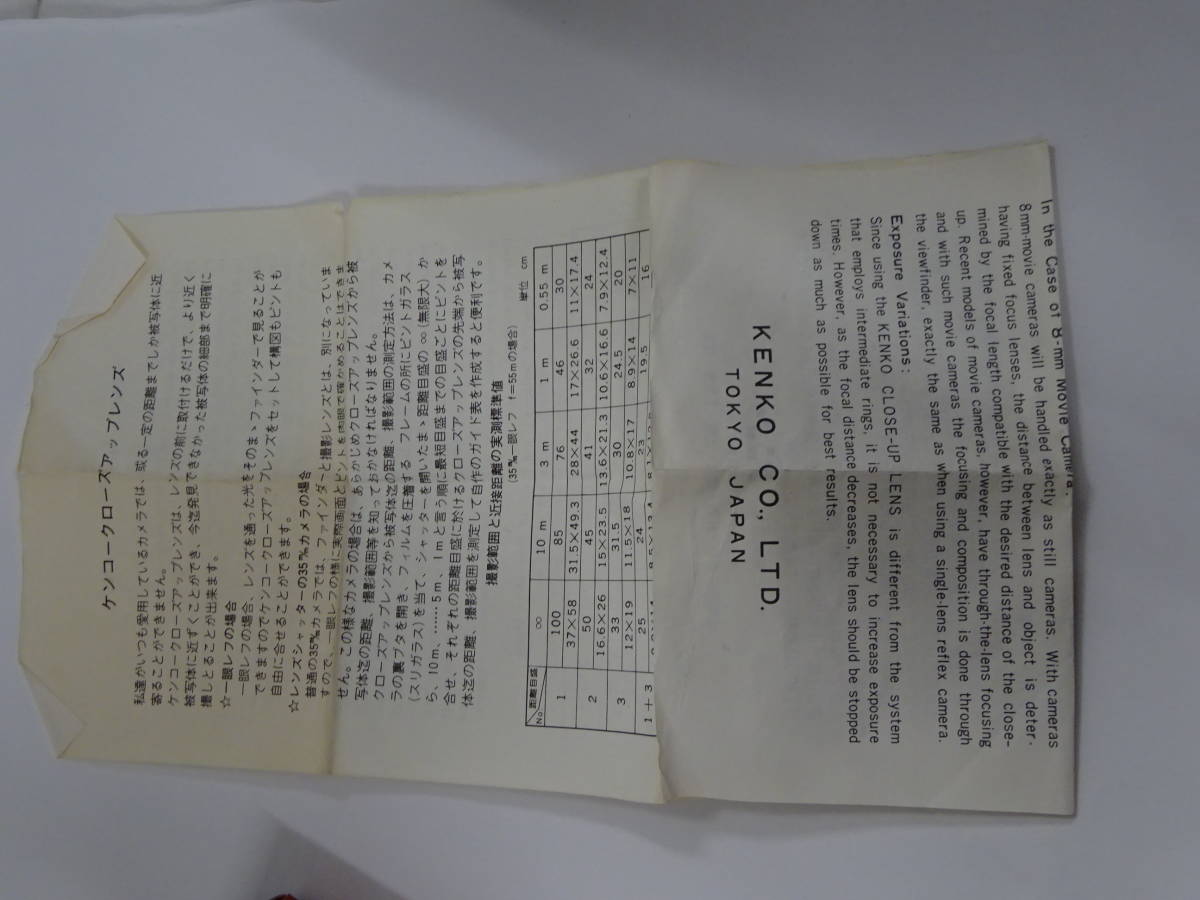 ケンコークローズアップレンズ
私達がいつも愛用しているカメラでは、或る一定の距離までしか被写体に近
寄ることができません。
ケンコークローズアップレンズは、レンズの前に取付けるだけで、より近く
被写体に近ずくことができ、今迄発見できなかった被写体の細部まで明確に
撮しとることが出来ます。
☆一眼レフの場合
一眼レフの場合、レンズを通った光をそのまゝファインダーで見ることが
できますのでケンコークローズアップレンズをセットして構図もピントも
自由に合せることができます。
☆レンズシャッターの35㎜カメラの場合
普通の35㎜カメラでは、ファインダーと撮影レンズとは、別になっていま
すので、一眼レフの様に実際画面とピントを肉眼で確かめることはできま
せん。この様なカメラの場合は、あらかじめクローズアップレンズから被
写体迄の距離、撮影範囲等を知っておかなければなりません。
クローズアップレンズから被写体迄の距離、撮影範囲の測定方法は、カメ
ラの裏ブタを開き、フィルムを圧着する フレームの所にピントガラス
(スリガラス)を当て、シャッターを開いたまゝ距離目盛の ∞(無限大)か
ら、10m、……5m、1mと言う順に最短目盛までの目盛ごとにピントを
合せ、それぞれの距離目盛に於けるクローズアップレンズの先端から被写
体迄の距離、撮影範囲を測定して自作のガイド表を作成すると便利です。
撮影範囲と近接距離の実測標準値
(35㎜一眼レフ f=55mの場合)
単位 cm
No. 距離目盛 ∞ 10 m 3 m 1 m 0.55 m
1 100 85 76 46 30
37×58 31.5×49.3 28×44 17×26.6 11×17.4
2 50 45 41 32 24
16.6×26 15×23.5 13.6×21.3 10.6×16.6 7.9×12.4
3 33 31.5 30 24.5 20
12×19 11.5×18 10.8×17 8.9×14 7×11
1+3 25 24 23 19.5 16
In the Case of 8-mm Movie Camera:
8mm-movie cameras will be handled exactly as still cameras. With cameras
having fixed focus lenses, the distance between lens and object is deter-
mined by the focal length compatible with the desired distance of the close-
up. Recent models of movie cameras, however, have through-the-lens focusing
and with such movie cameras the focusing and composition is done through
the viewfinder, exactly the same as when using a single-lens reflex camera.
Exposure Variations:
Since using the KENKO CLOSE-UP LENS is different from the system
that employs intermediate rings, it is not necessary to increase exposure
times. However, as the focal distance decreases, the lens should be stopped
down as much as possible for best results.
KENKO CO., LTD.
TOKYO JAPAN